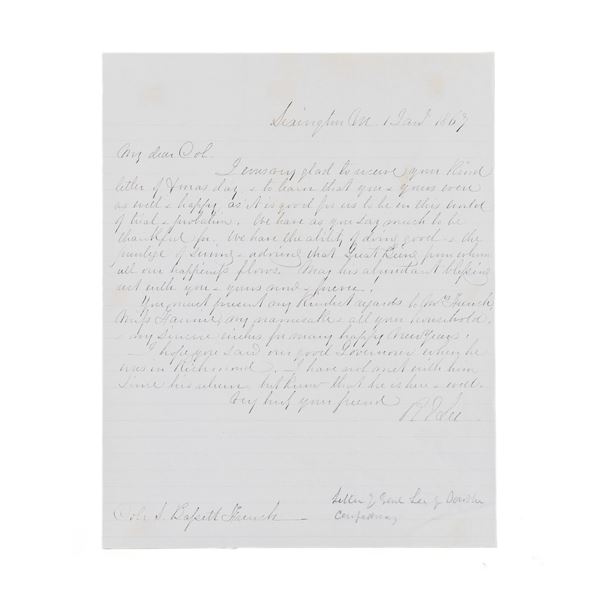 Lexington Va 1 Jany 1867
My dear Col.
I was very glad to receive your kind
letter of Xmas day & to learn that you & yours were
as well & happy as it is good for us to be in this world
of trial & probation. We have as you say much to be
thankful for. We have the ability of doing good & the
privilege of serving & adoring that Great Being from whom
all our happiness flows. May his abundant blessing
rest with you & yours now & forever!
You must present my kindest regards to Mrs French,
Miss Fannie, my namesake & all your household,
& my sincere wishes for many happy New Years!
I hope you said our good Governor when he
was in Richmond. I have not met with him
since his return but know that he is here & well.
Very truly your friend
R E Lee
Letter of Genl Lee of Southn
Confederacy
Col. S. Bassett French